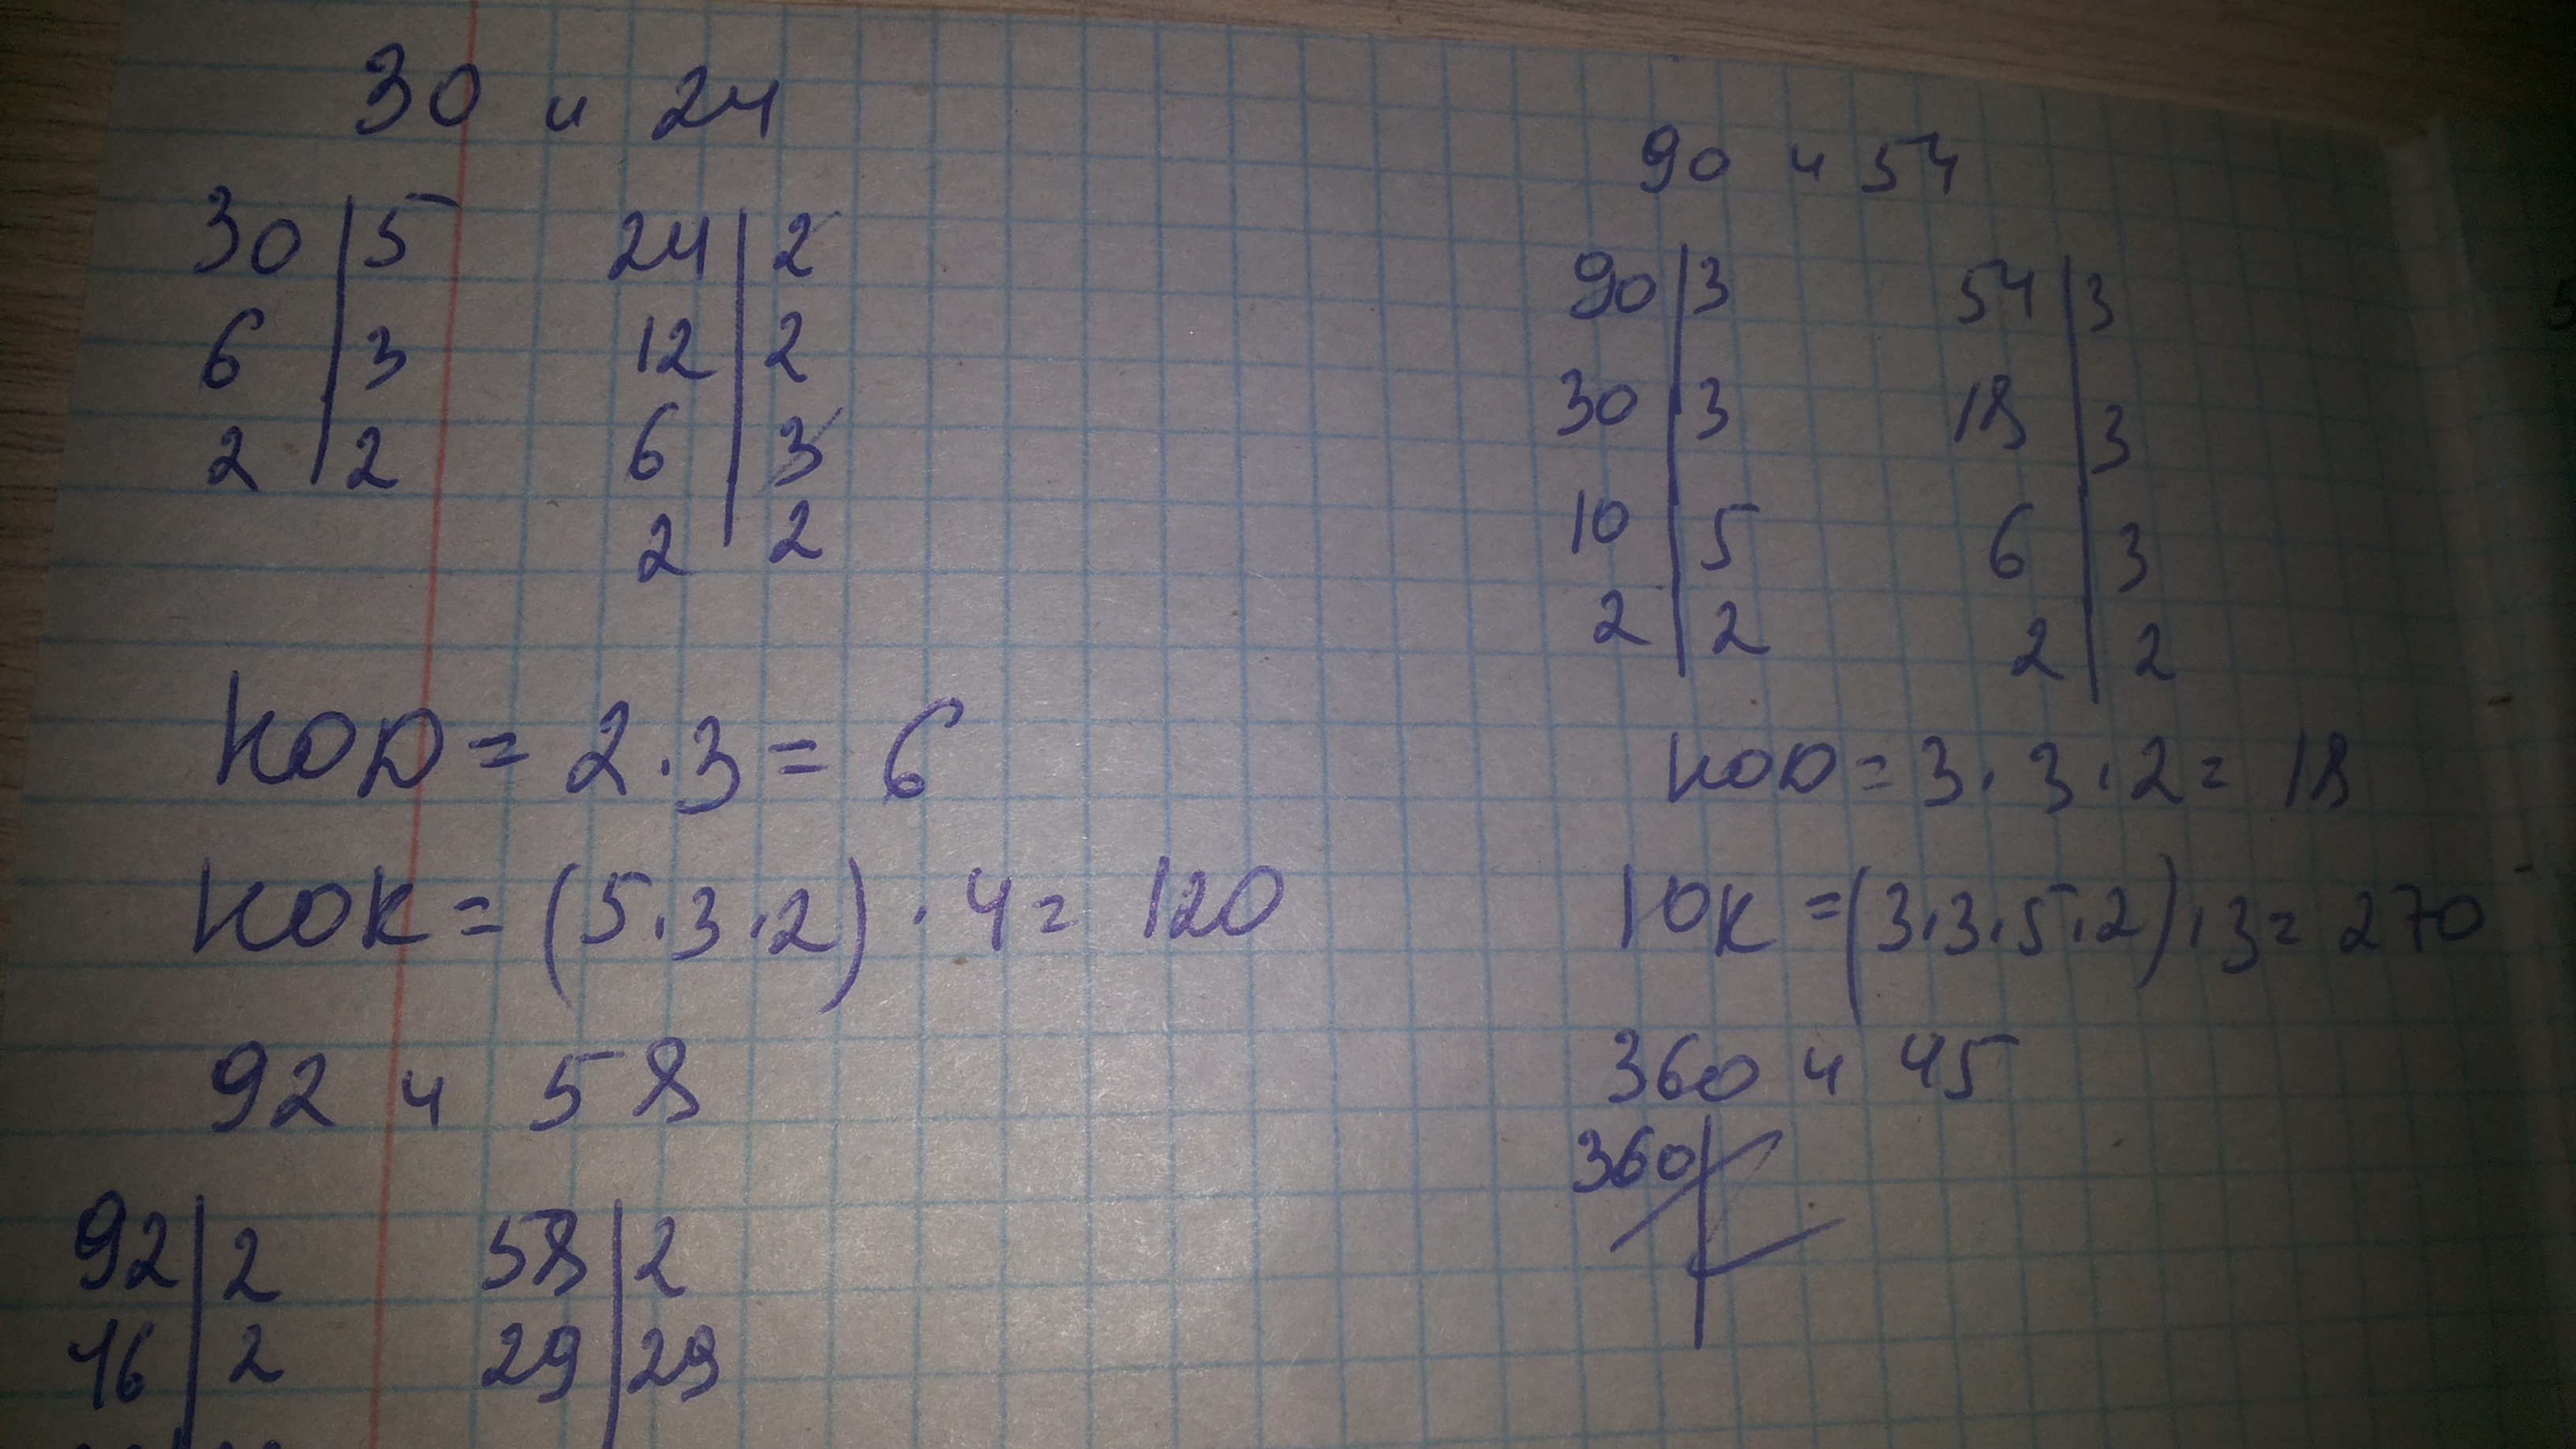 30 и 24
30 | 5 24 | 2
6 | 3 12 | 2
2 | 2 6 | 3
2 2
НОД = 2 · 3 = 6
НОК = (5 · 3 · 2) · 4 = 120
92 и 58
92 | 2 58 | 2
46 | 2 29 | 29
90 и 54
90 | 3 54 | 3
30 | 3 18 | 3
10 | 5 6 | 3
2 | 2 2 | 2
НОД = 3 · 3 · 2 = 18
НОК = (3 · 3 · 5 · 2) · 3 = 270
360 и 45
360 |